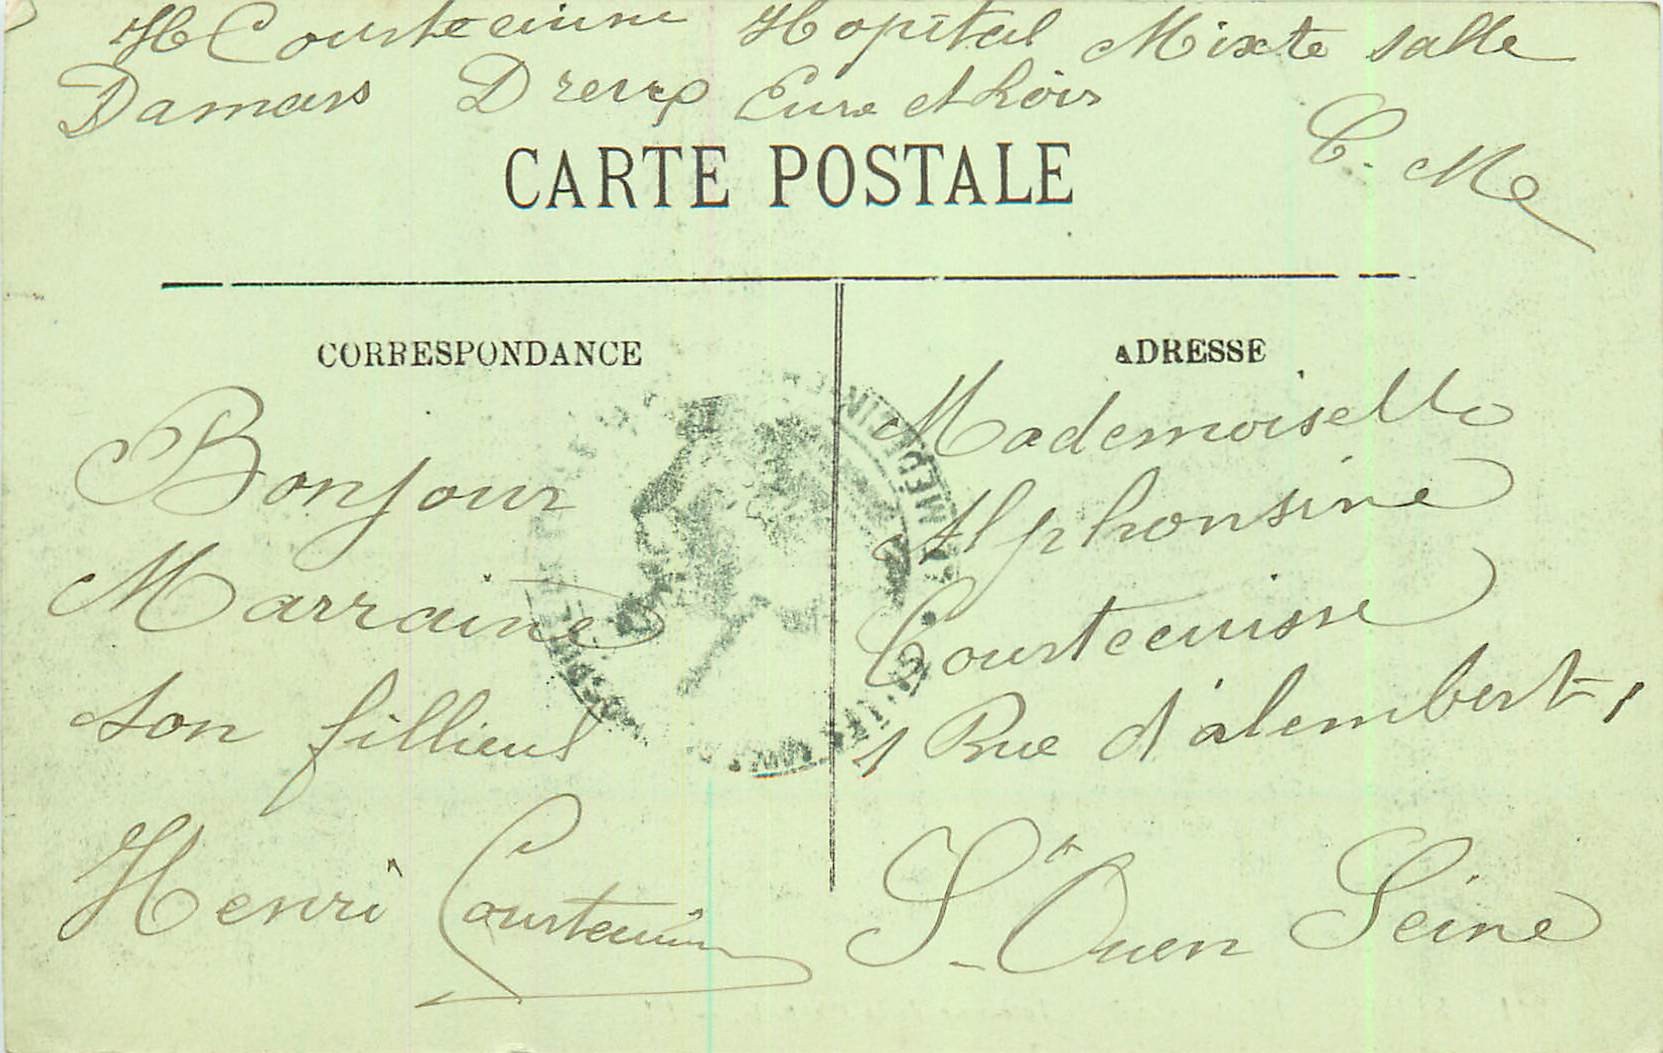 H Courtecuisse Hopital Mixte salle
Damars Dreux Eure et Loir
C. Me
CARTE POSTALE
CORRESPONDANCE
ADRESSE
Bonjour
Marraine
son fillieul
Henri Courtecuisse
Mademoiselle
Alphonsine
Courtecuisse
1 Rue d'alembert,
St-Ouen Seine
MÉDECIN